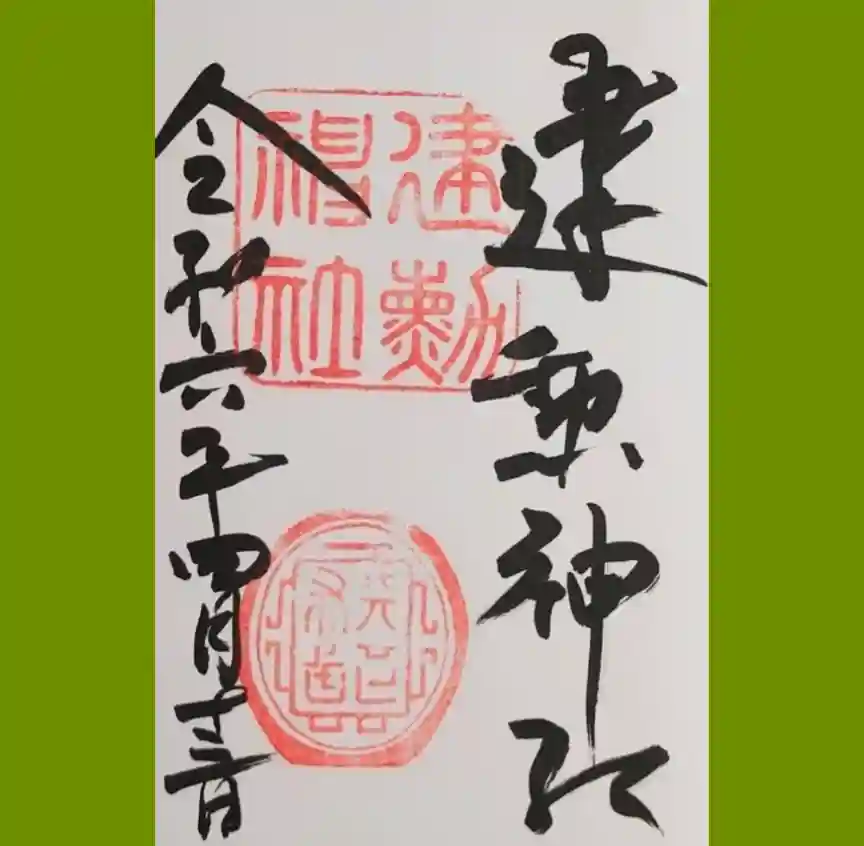 建勲神社
建勲
神社
令和六年四月十三日